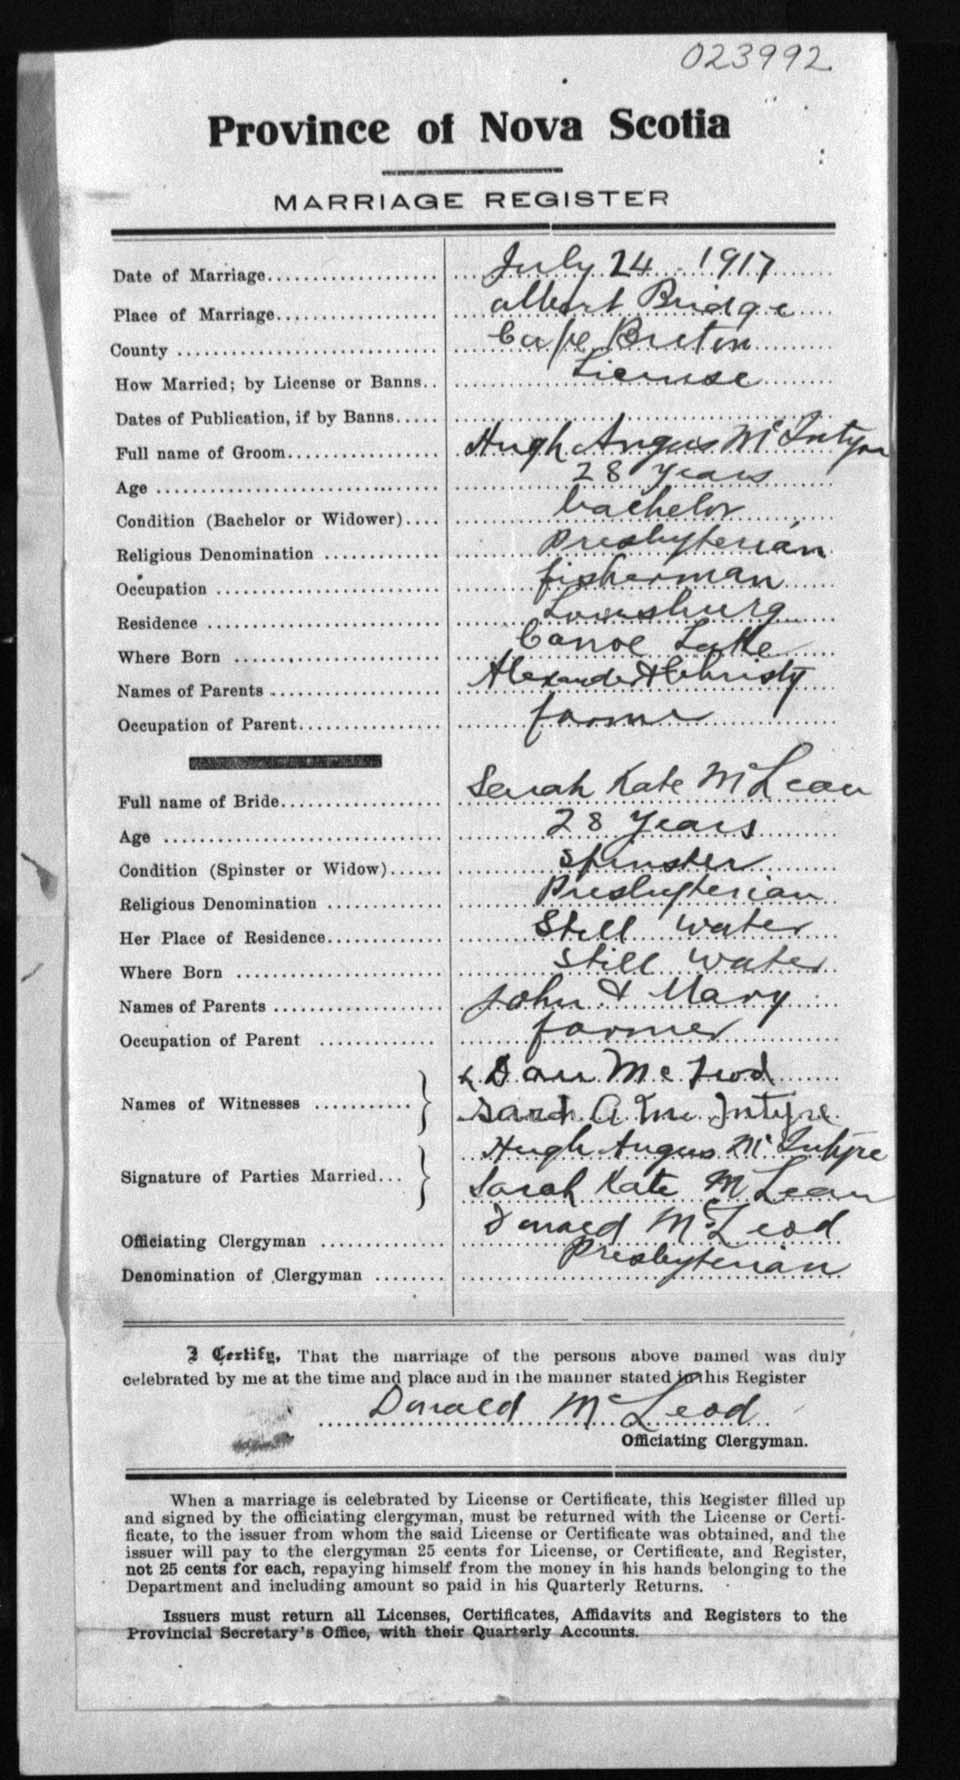 023992
Province of Nova Scotia
MARRIAGE REGISTER
Date of Marriage................... July 24 1917
Place of Marriage................. Albert Bridge
County ............................. Cape Breton
How Married; by License or Banns.. License
Dates of Publication, if by Banns.....
Full name of Groom................. Hugh Angus McIntyre
Age ............................... 28 Years
Condition (Bachelor or Widower).... bachelor
Religious Denomination ............ Presbyterian
Occupation ......................... fisherman
Residence .......................... Louisburg
Where Born ......................... Canoe Lake
Names of Parents ................... Alexander & Christy
Occupation of Parent............... farmer
Full name of Bride................. Sarah Kate McLean
Age ............................... 28 Years
Condition (Spinster or Widow)...... Spinster
Religious Denomination ............ Presbyterian
Her Place of Residence............. Still water
Where Born ......................... Still water
Names of Parents ................... John & Mary
Occupation of Parent ............. farmer
Dan McLeod
Names of Witnesses ...........
Sarah A McIntyre
Hugh Angus McIntyre
Signature of Parties Married...
Sarah Kate McLean
Officiating Clergyman ............. Donald McLeod
Denomination of Clergyman ........ Presbyterian
I Certify, That the marriage of the persons above named was duly
celebrated by me at the time and place and in the manner stated in this Register
Donald McLeod
Officiating Clergyman.
When a marriage is celebrated by License or Certificate, this Register filled up
and signed by the officiating clergyman, must be returned with the License or Certi-
ficate, to the issuer from whom the said License or Certificate was obtained, and the
issuer will pay to the clergyman 25 cents for License, or Certificate, and Register,
not 25 cents for each, repaying himself from the money in his hands belonging to the
Department and including amount so paid in his Quarterly Returns.
Issuers must return all Licenses, Certificates, Affidavits and Registers to the
Provincial Secretary's Office, with their Quarterly Accounts.